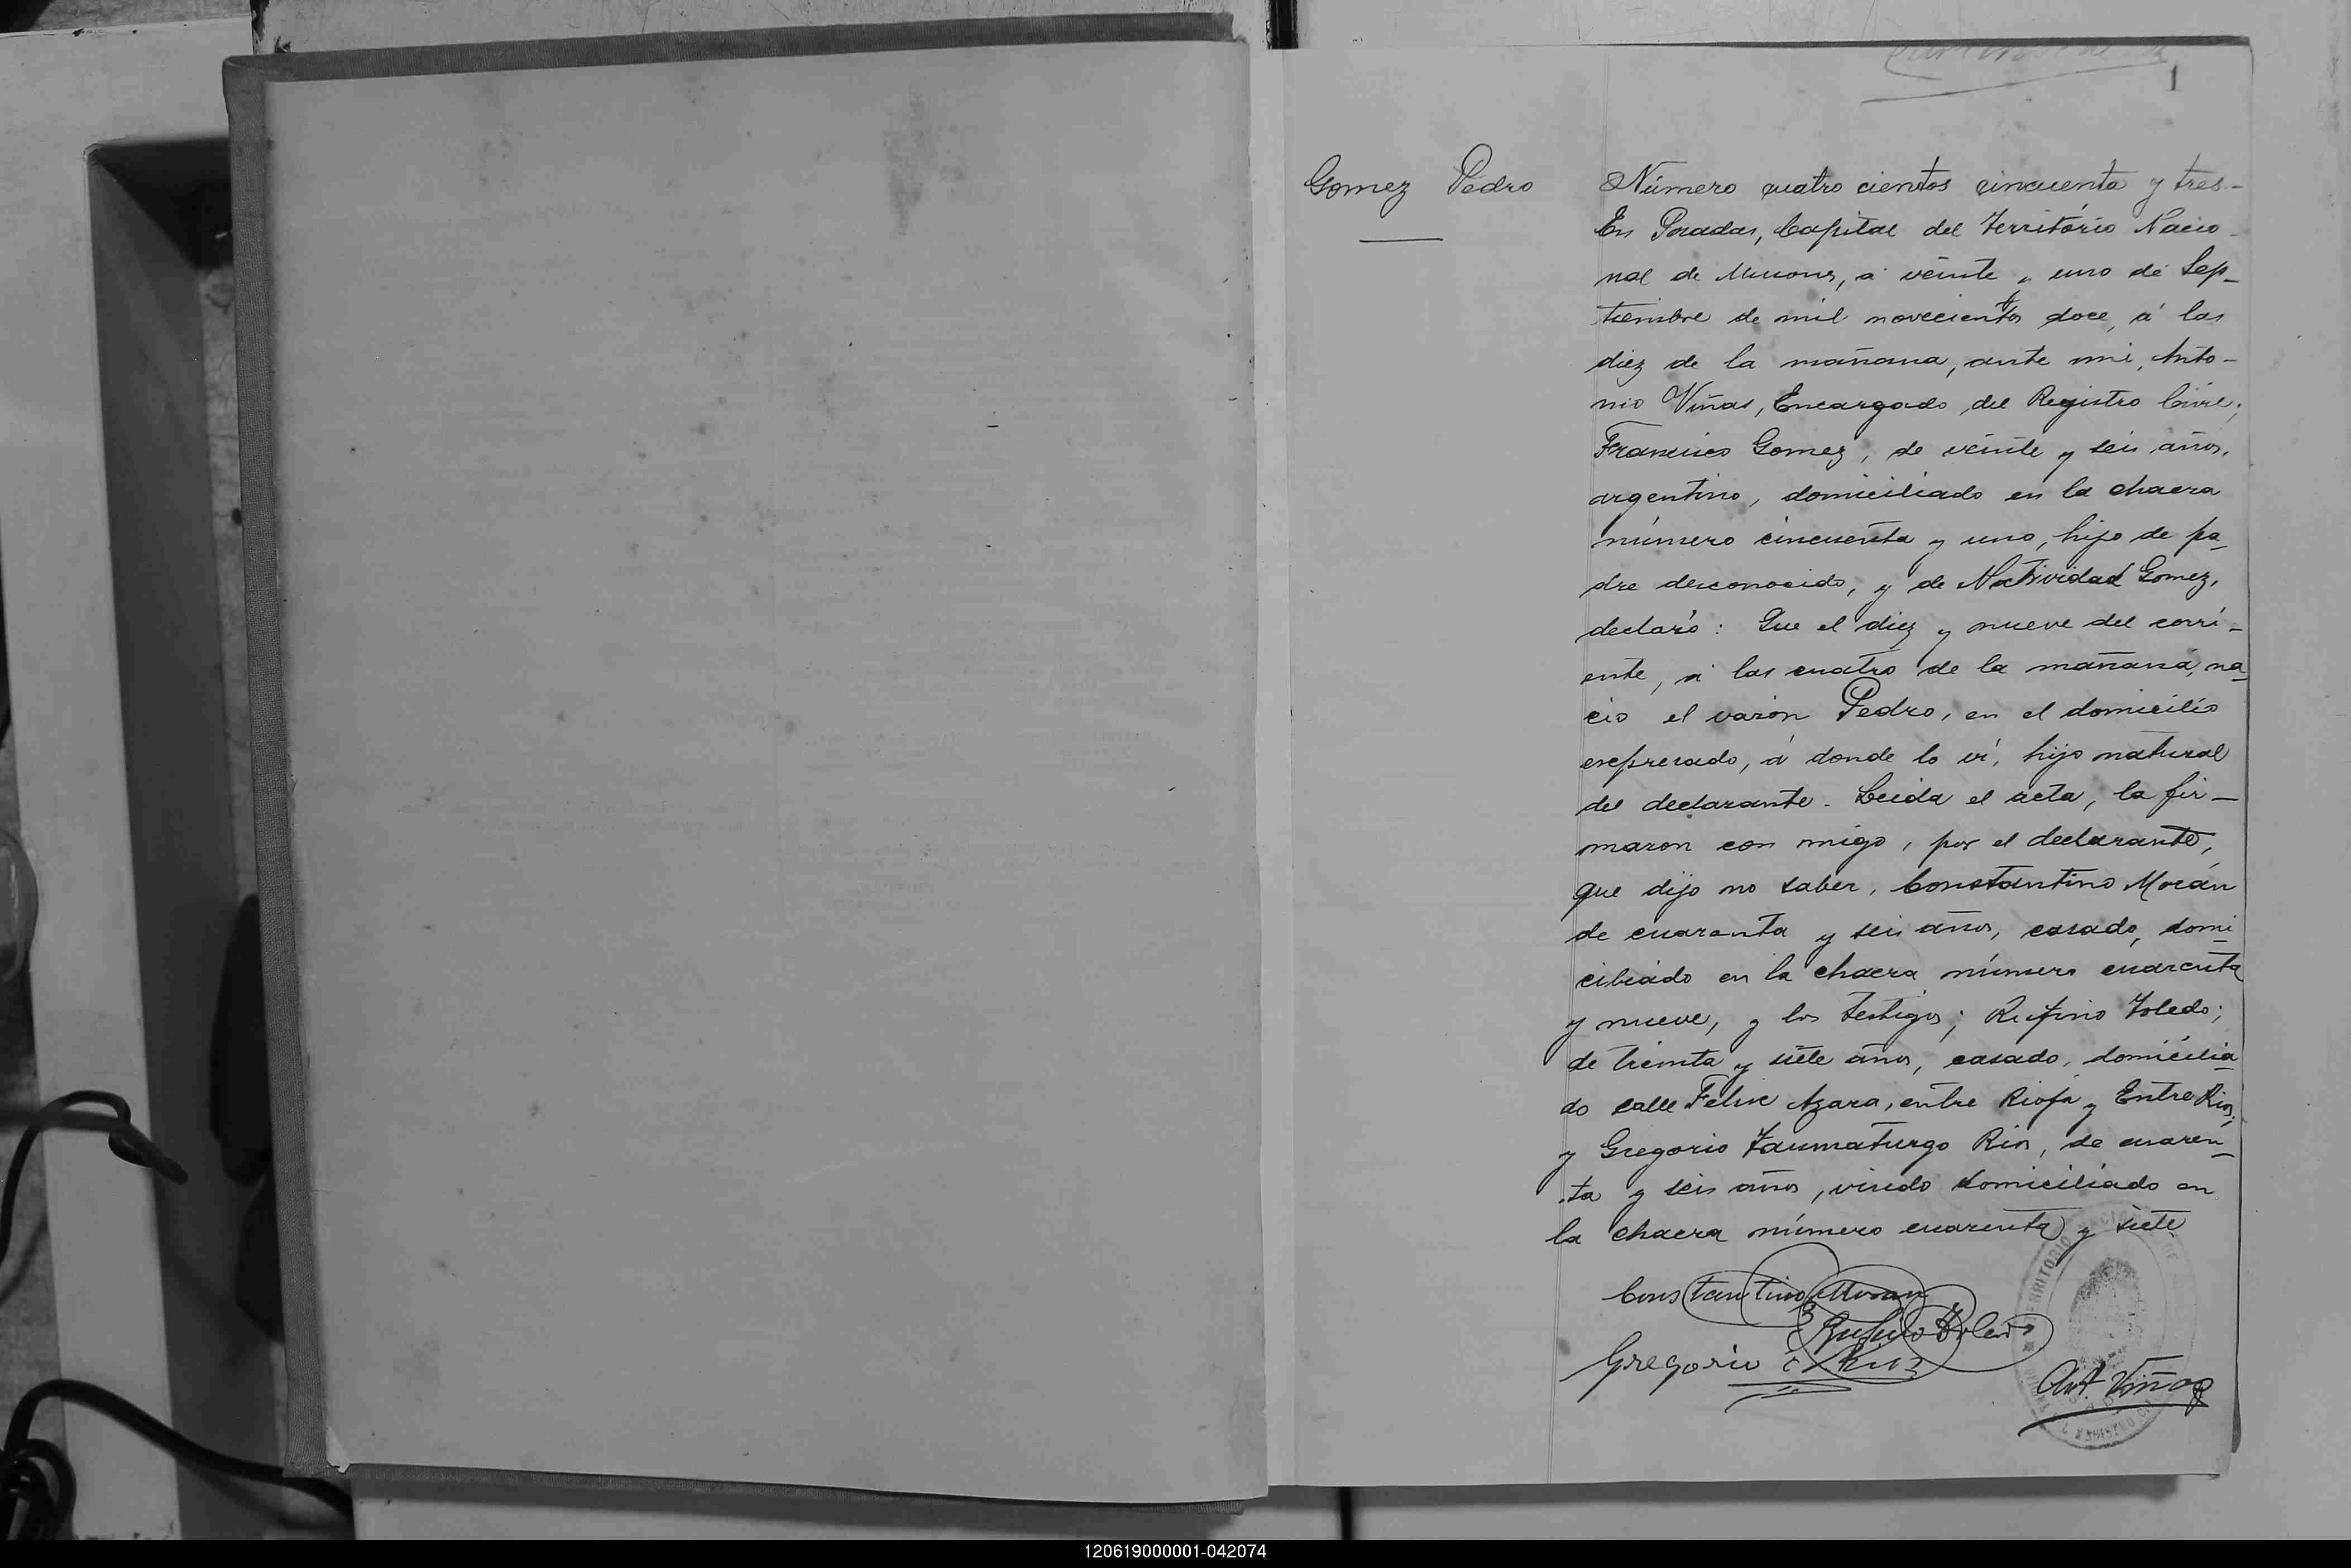 1
Gomez Pedro
Número cuatro cientos cincuenta y tres-
En Posadas, Capital del Território Nacio-
nal de Misiones, a veinte y uno de Sep-
tiembre de mil novecientos doce, á las
diez de la mañana, ante mi, Anto-
nio Viñas, Encargado del Registro Civil;
Francisco Gomez, de veinte y seis años,
argentino, domiciliado en la chacra
número cincuenta y uno, hijo de pa-
dre desconocido, y de Natividad Gomez,
declaró: Que el diez y nueve del corri-
ente, á las cuatro de la mañana, na-
cio el varon Pedro, en el domicilio
expresado, á donde lo vi, hijo natural
del declarante. Leida el acta, la fir-
maron con migo, por el declarante,
que dijo no saber, Constantino Morán
de cuarenta y seis años, casado, domi-
ciliado en la chacra número cuarenta
y nueve, y los testigos; Rufino Toledo;
de treinta y siete años, casado, domicilia-
do calle Felix Azara, entre Rioja y Entre Rios;
y Gregorio Taumaturgo Rios, de cuaren-
ta y seis años, viudo domiciliado en
la chacra número cuarenta y siete
Constantino Moran
Rufino Toledo
Gregorio Rios
Ant. Viñas
TERRITORIO NACIONAL DE
120619000001-042074